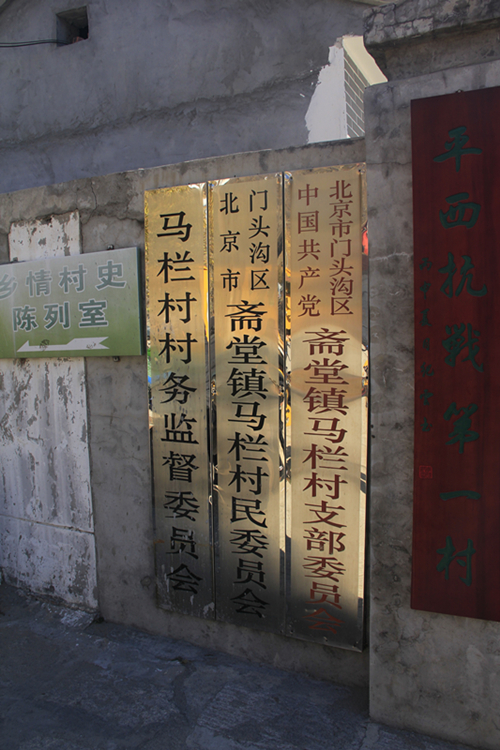 乡情村史
陈列室
马栏村村务监督委员会
北京市
门头沟区
斋堂镇马栏村民委员会
中国共产党
北京市门头沟区
斋堂镇马栏村支部委员会
平西抗战第一村